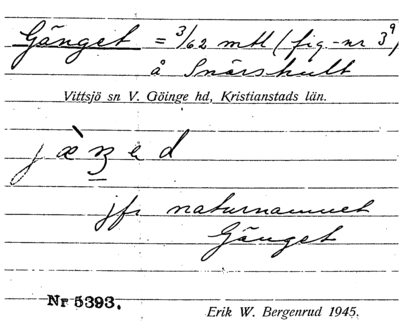 Gänget = 3/62 mtl (fig.-nr 3⁹)
å Snärshult
Vittsjö sn V. Göinge hd, Kristianstads län.
jfr naturnamnet
Gänget
Nr 5393.
Erik W. Bergenrud 1945.